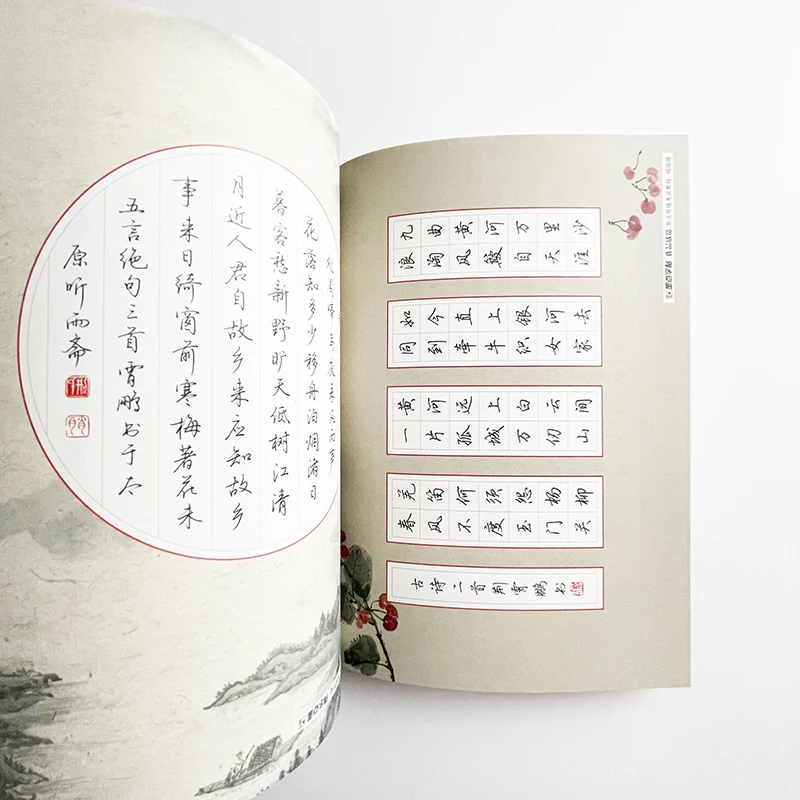 处闻啼鸟夜来风雨声
花落知多少移舟泊烟渚日
暮客愁新野旷天低树江清
月近人君自故乡来应知故乡
事来日绮窗前寒梅著花未
五言绝句三首霄鹏书于太
原听雨斋
墨点字帖
九曲黄河万里沙
浪淘风簸自天涯
如今直上银河去
同到牵牛织女家
黄河远上白云间
一片孤城万仞山
羌笛何须怨杨柳
春风不度玉门关
古诗二首荆霄鹏书
墨点字帖